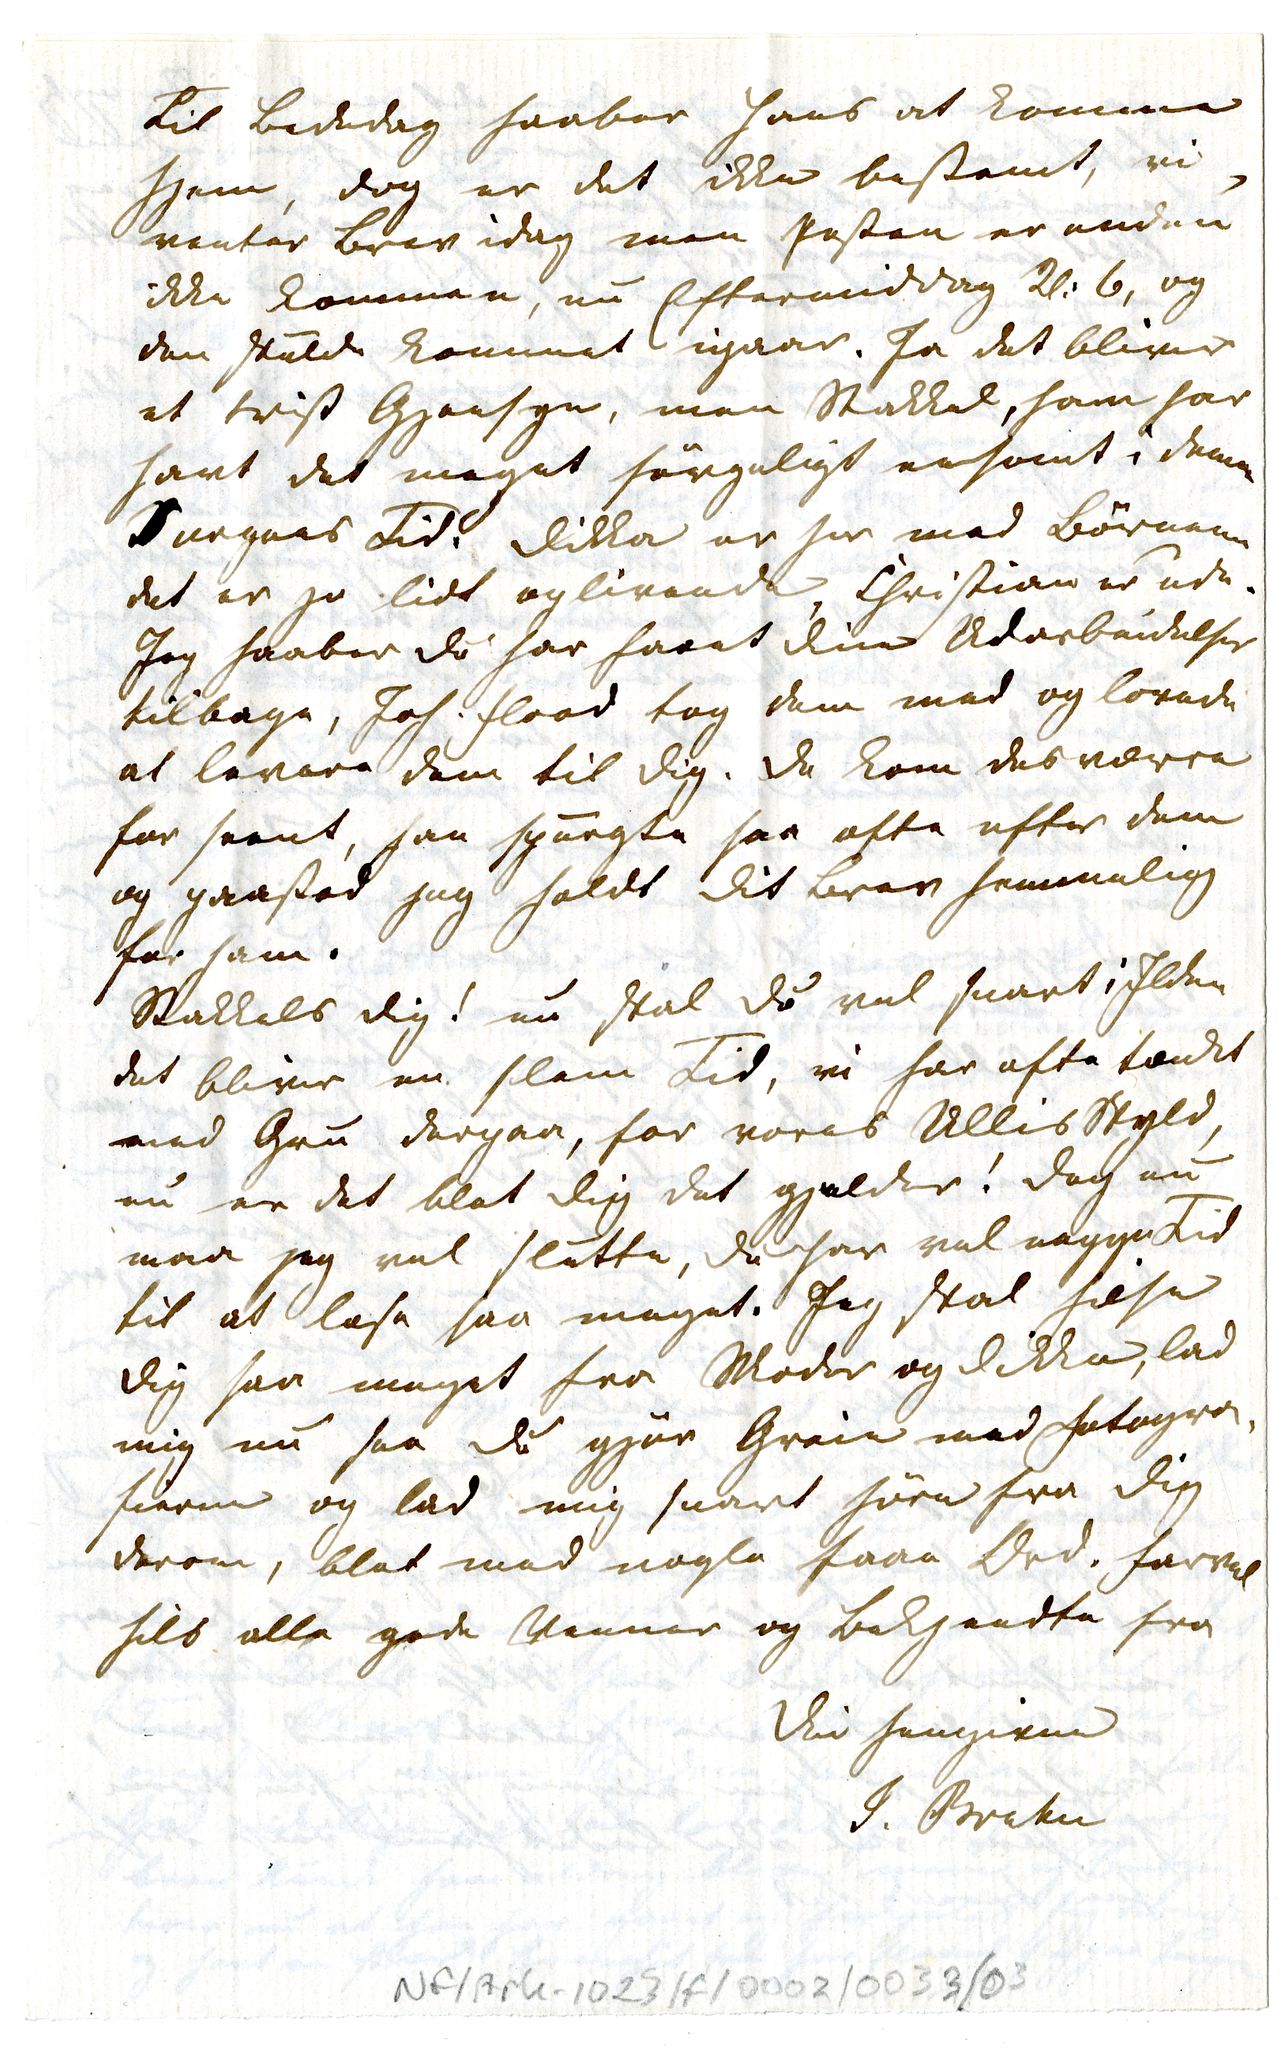 Til Bededag haaber Hans at komme
hjem, dog er det ikke bestemt, vi
venter Brev idag men Posten er enduu
ikke kommen, nu Eftermiddag Kl: 6, og
den skulde kommet igaar. Ja det bliver
et trist Gjensyn, men Stakkel, han har
havt det meget sörgeligt ensomt i denne
Sorgens Tid. Dikka er her med Börnene
det er jo lidt oplivende, Christian er ude.
Jeg haaber Du har faaet dine Udarbeidelser
tilbage, Joh. Flood tog dem med og lovede
at levere dem til Dig. De kom desværre
for seent, han spurgte saa ofte efter dem
og paastod jeg holdt Dit Brev hemmelig
for ham.
Stakkels Dig! nu skal Du vel snart i Ilden
det bliver en slem Tid, vi har ofte tænkt
med Gru derpaa, for vores Ullis Skyld,
nu er det blot Dig det gjelder! Dog nu
maa jeg vel slutte, Du har vel neppe Tid
til at læse saa meget. Jeg skal hilse
Dig saa meget fra Moder og Dikka, lad
mig nu see Du gjör Grein med Fotogra-
fierne og lad mig snart höre fra Dig
derom, blot med nogle faae Ord. Farvel
hils alle gode Venner og Bekjendte fra
Din hengivne
J. Brekn
NF/Ark-1023/F/0002/0033/03